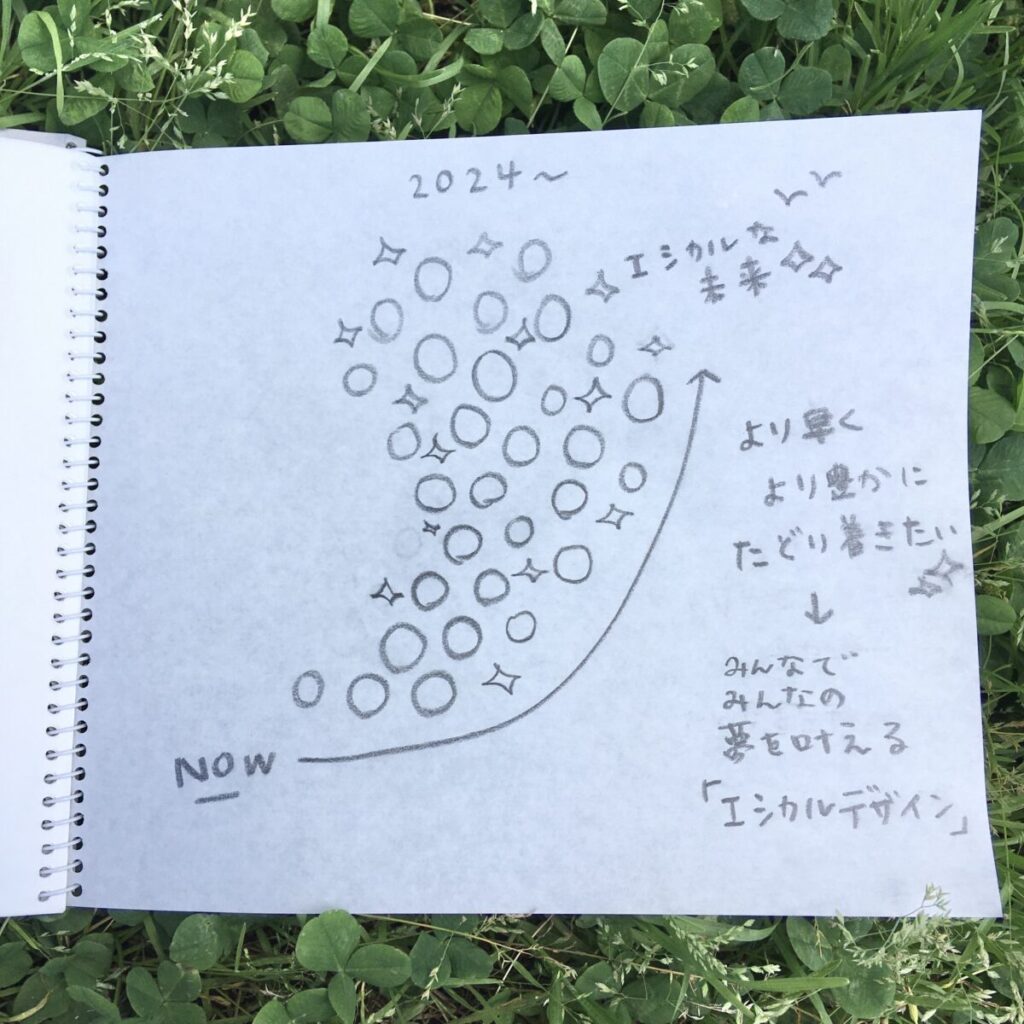 2024～
エシカルな
未来
より早く
より豊かに
たどり着きたい
↓
みんなで
みんなの
夢を叶える
「エシカルデザイン」
NOW